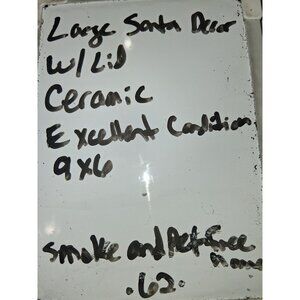 Large Santa Decor
W/Lid
Ceramic
Excellent Condition
9x6
Smoke and Pet Free
Home
.62.